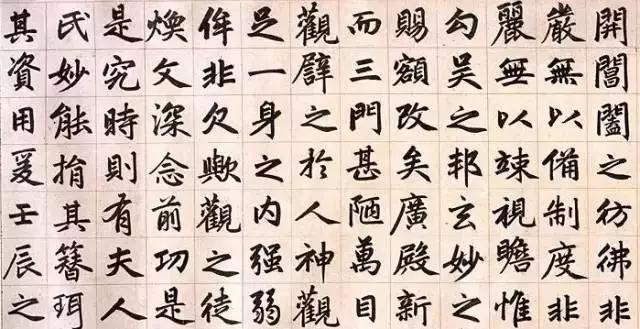 開閶闔之彷彿非
嚴無以備制度非
麗無以竦視瞻惟
勾吴之邦玄妙之
賜額改矣廣殿新
而三門甚陋萬目
觀譬之於人神觀
足一身之内强弱
侔非欠歟觀之徒
煥文深念前功是
是究時則有夫人
氏妙能捐其簪珥
其資用爰壬辰之